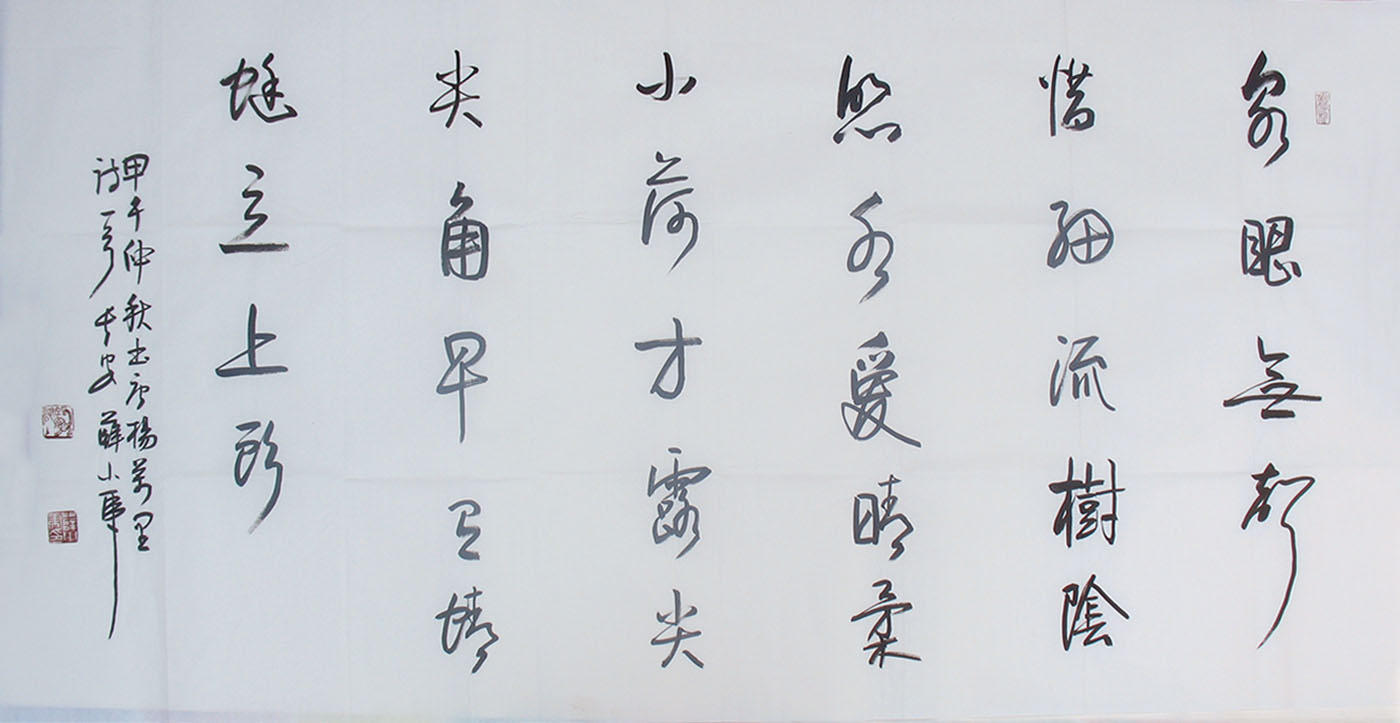 泉眼無聲
惜細流樹陰
照水愛晴柔
小荷才露尖
尖角早有蜻
蜓立上頭
甲午仲秋书唐楊萬里
詩一首 长安 薛小